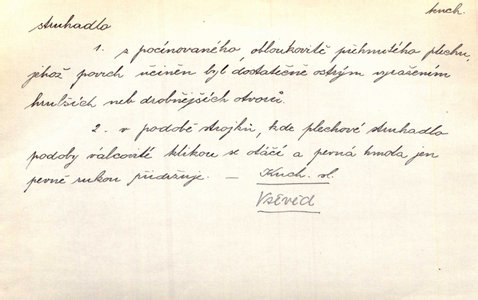 kuch.
struhadlo
1. z pocínovaného, obloukovitě přehnutého plechu,
jehož povrch učiněn byl dostatečně ostrým vyražením
hrubších neb drobnějších otvorů.
2. v podobě strojků, kde plechové struhadlo
podoby válcovité klikou se otáčí a pevná hmota jen
pevně rukou přidržuje. — Kuch. sl.
Vševěd